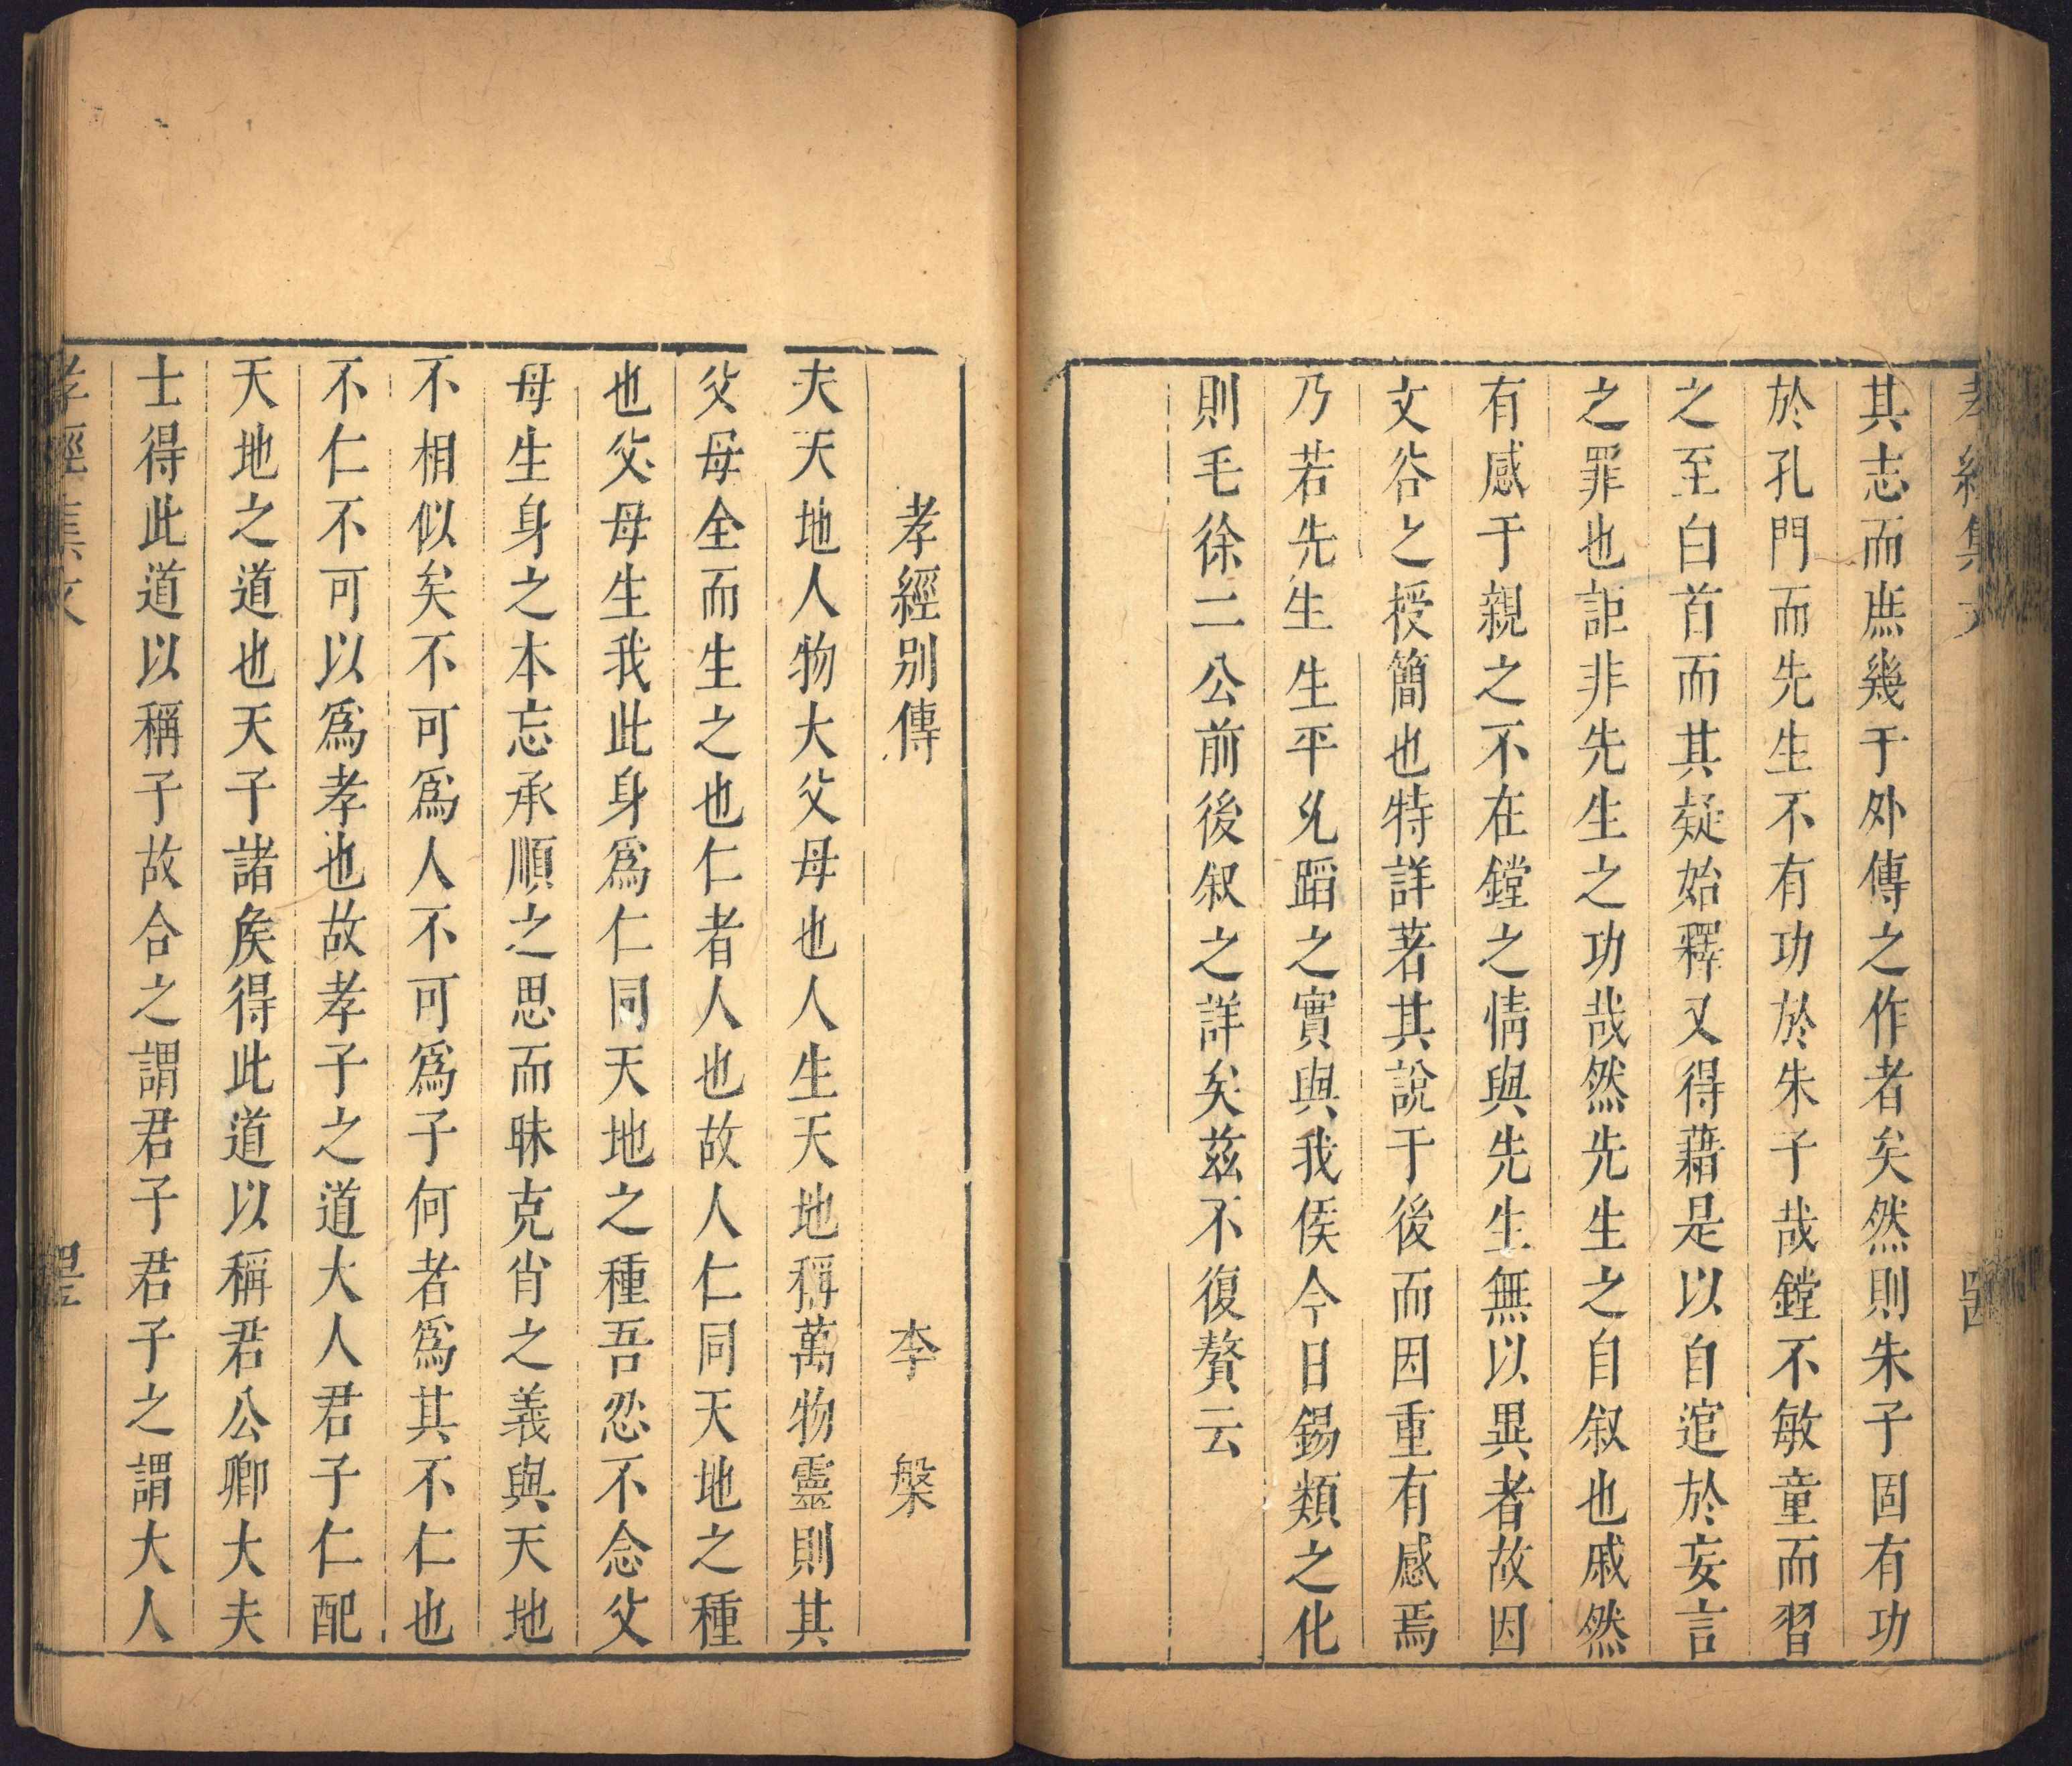 孝經集文
其志而庶幾于外傳之作者矣然則朱子固有功
於孔門而先生不有功於朱子哉鏜不敏童而習
之至白首而其疑始釋又得藉是以自逭於妄言
之罪也詎非先生之功哉然先生之自叙也戚然
有感于親之不在鏜之情與先生無以異者故因
文谷之授簡也特詳著其說于後而因重有感焉
乃若先生生平允蹈之實與我侯今日錫類之化
則毛徐二公前後叙之詳矣茲不復贅云
孝經別傳 李槃
夫天地人物大父母也人生天地稱萬物靈則其
父母全而生之也仁者人也故人仁同天地之種
也父母生我此身爲仁同天地之種吾忍不念父
母生身之本忘承順之思而昧克肖之義與天地
不相似矣不可爲人不可爲子何者爲其不仁也
不仁不可以爲孝也故孝子之道大人君子仁配
天地之道也天子諸矦得此道以稱君公卿大夫
士得此道以稱子故合之謂君子君子之謂大人
孝經集文